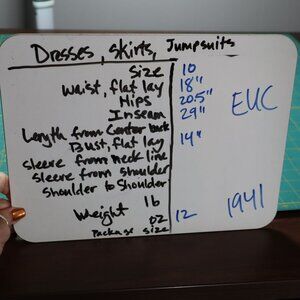 Dresses, skirts, Jumpsuits
Size 10
Waist, flat lay 18"
Hips 20.5"
Inseam 29"
EUC
Length from Center back
Bust, flat lay 14"
sleeve from neck line
sleeve from shoulder
shoulder to shoulder
Weight lb
oz 12
1941
Package size